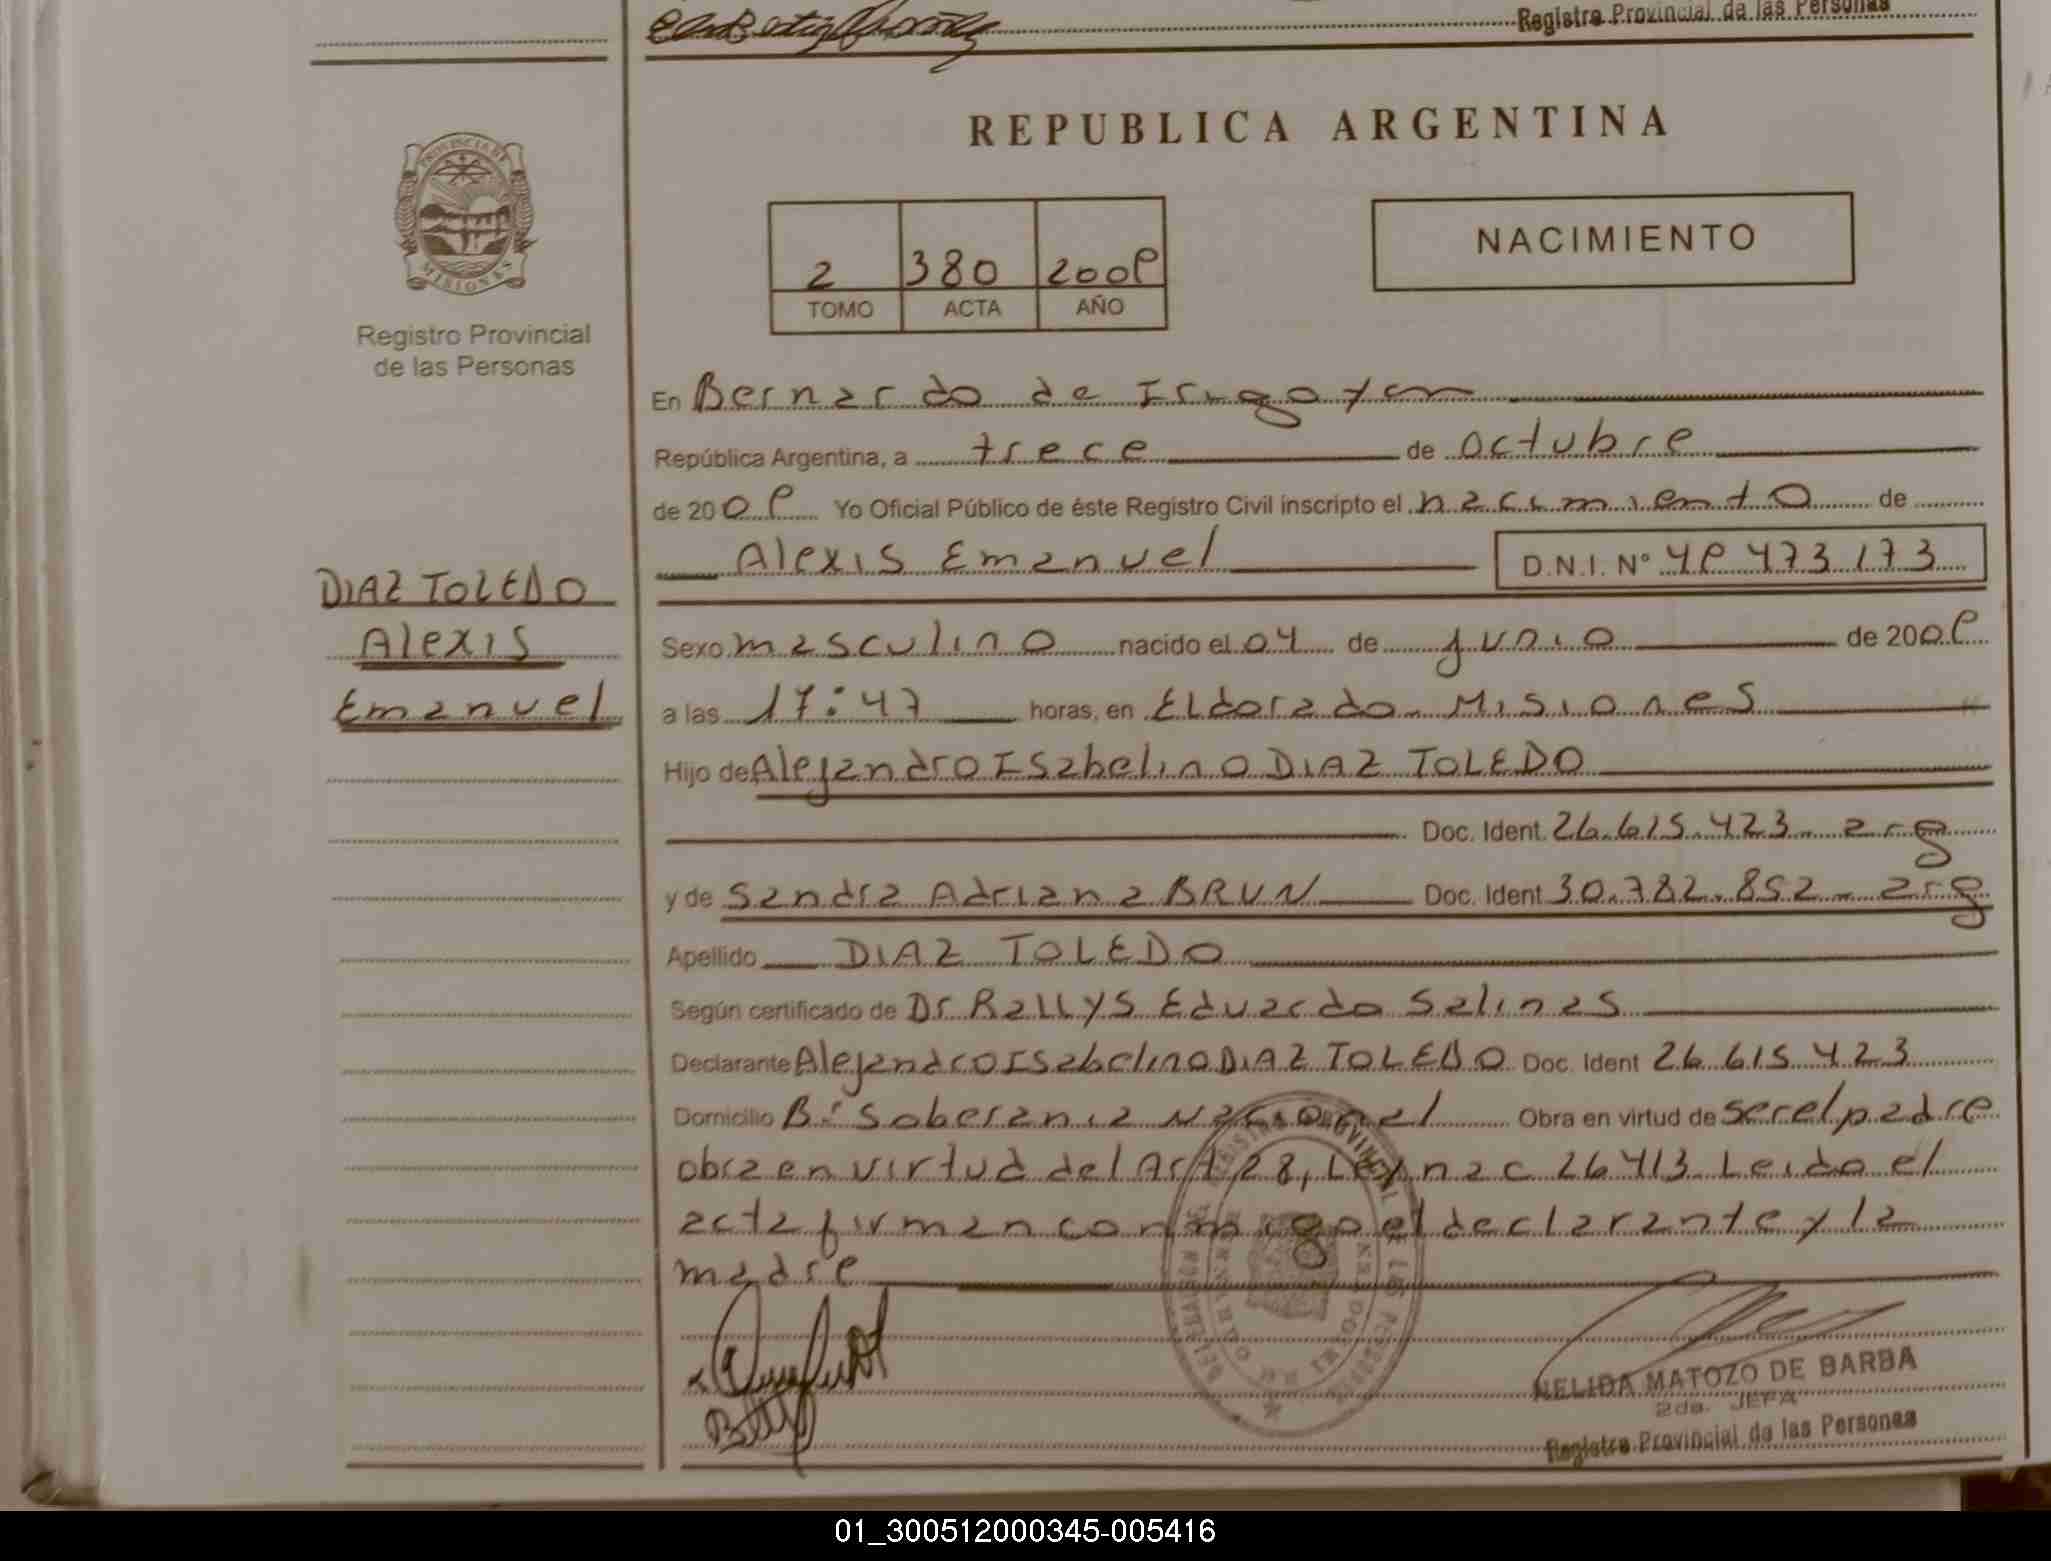 Registro Provincial de las Personas
REPUBLICA ARGENTINA
PROVINCIA DE
MISIONES
Registro Provincial
de las Personas
NACIMIENTO
2 380 2009
TOMO ACTA AÑO
En Bernardo de Irigoyen
República Argentina, a trece de octubre
de 2009 Yo Oficial Público de éste Registro Civil inscripto el nacimiento de
Alexis Emanuel D.N.I. Nº 49 473 173
DIAZ TOLEDO
Alexis
Emanuel
Sexo masculino nacido el 04 de junio de 2009
a las 17:47 horas, en Eldorado. Misiones
Hijo de Alejandro Isabelino DIAZ TOLEDO
Doc. Ident. 26.615.423 arg
y de Sandra Adriana BRUN Doc. Ident 30.782.852 arg
Apellido DIAZ TOLEDO
Según certificado de Dr Rallys Eduardo Salinas
Declarante Alejandro Isabelino DIAZ TOLEDO Doc. Ident 26 615 423
Domicilio Bº Soberania Nacional Obra en virtud de ser el padre
obra en virtud del Art 28, Ley nac 26413 Leido el
acta firman conmigo el declarante y la
madre
NELIDA MATOZO DE BARBA
2da. JEFA
Registro Provincial de las Personas
01_300512000345-005416